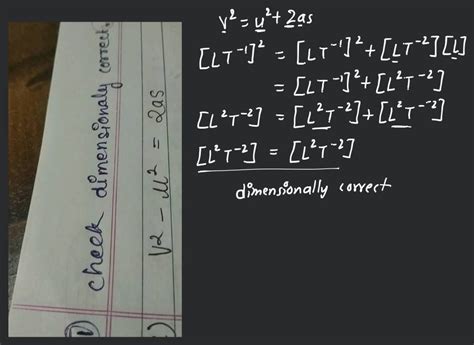 1) check dimensionaly correct.
V² - u² = 2as
v² = u² + 2as
[LT⁻¹]² = [LT⁻¹]² + [LT⁻²][L]
= [LT⁻¹]² + [L²T⁻²]
[L²T⁻²] = [L²T⁻²] + [L²T⁻²]
[L²T⁻²] = [L²T⁻²]
dimensionally correct